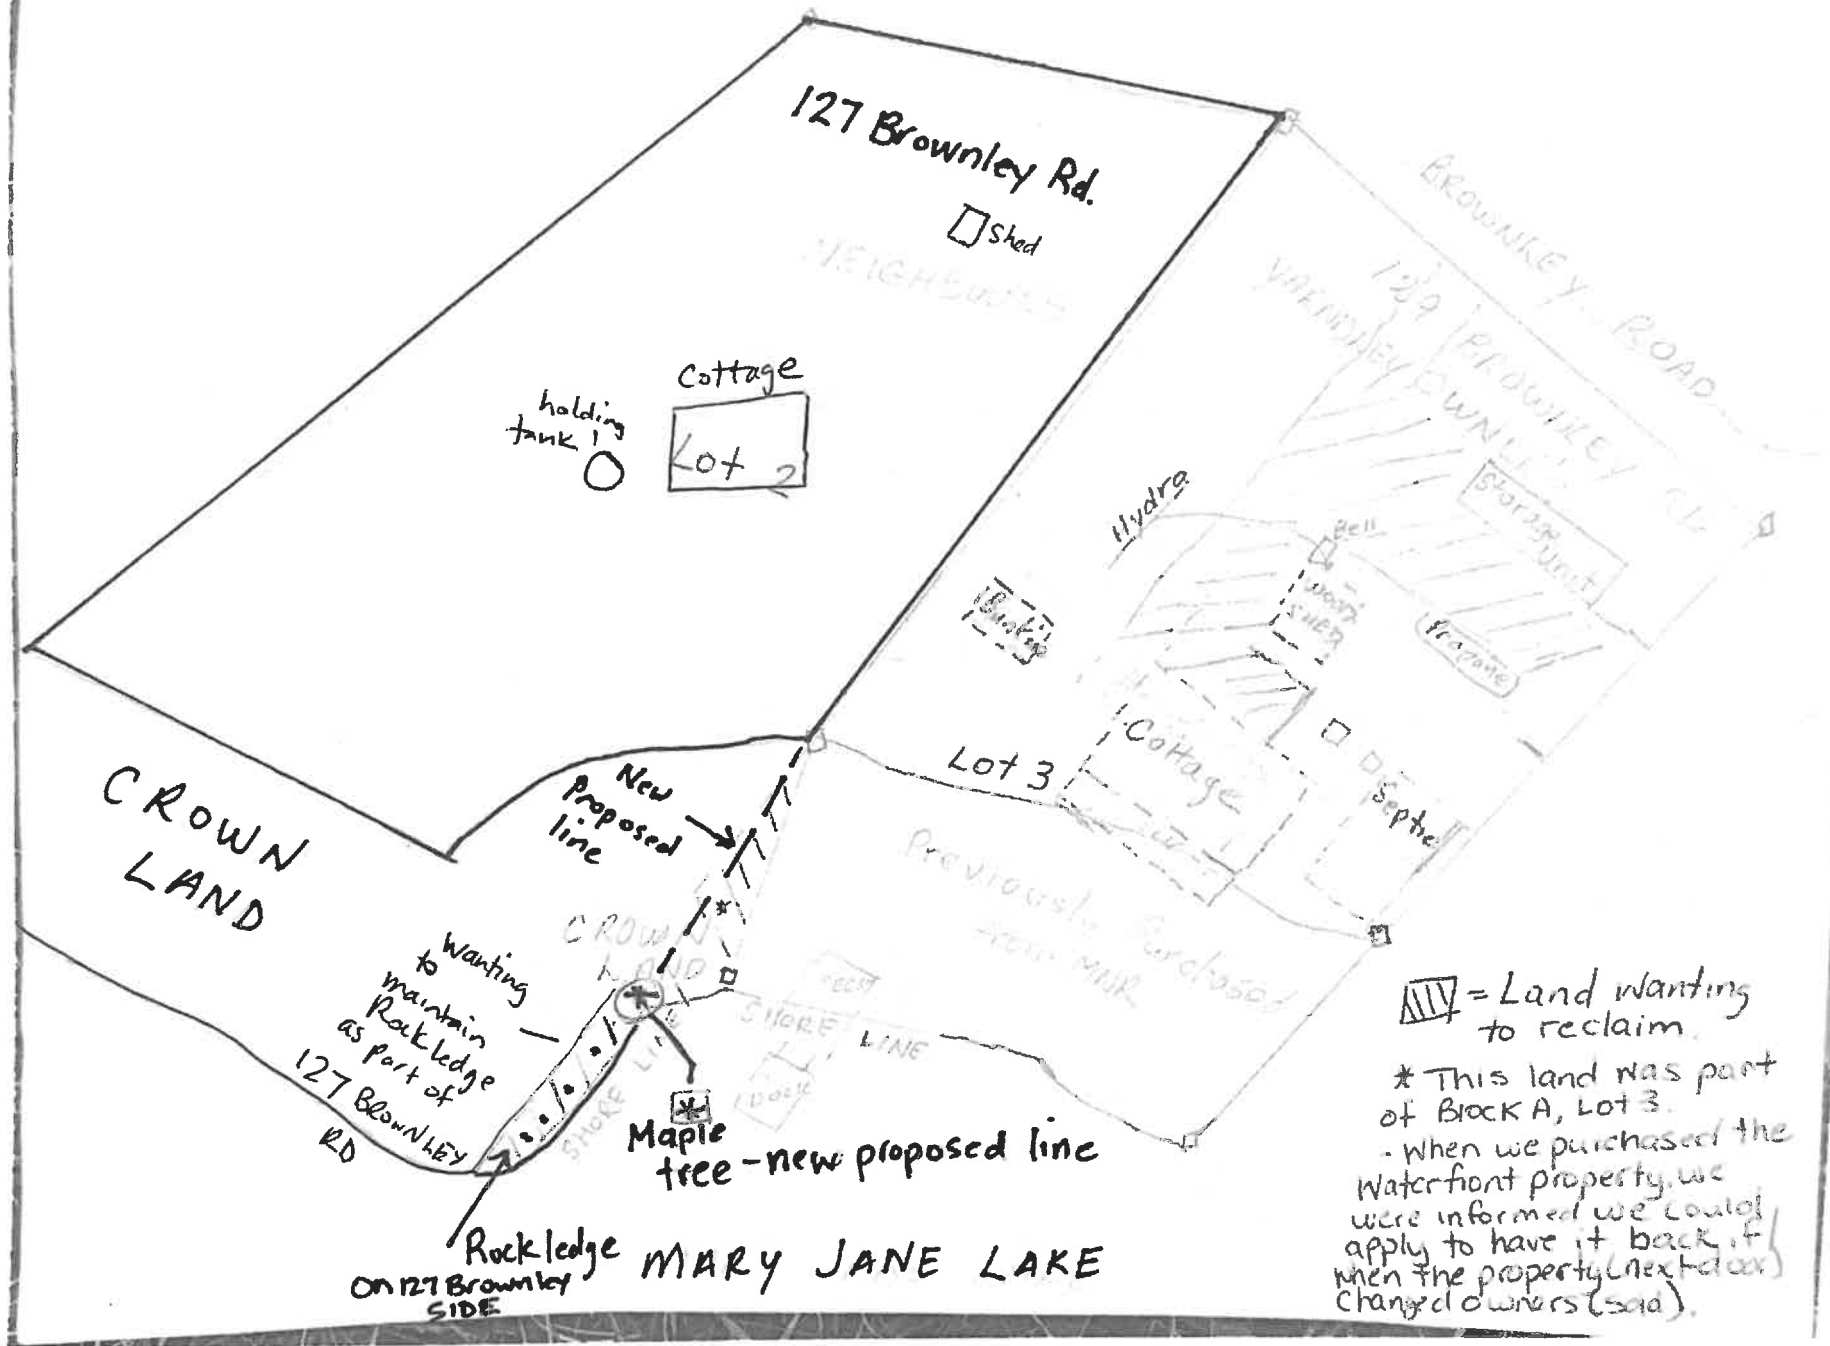 127 Brownley Rd.
Shed
NEIGHBOURS
BROWNLEY ROAD
129 BROWNLEY RD
OWNLY
Cottage
holding
tank
Lot 2
Hydro
Bell
Storage
Unit
WOOD
SHED
Propane
Bunkie
Cottage
Lot 3
Septic
CROWN
LAND
New
Proposed
line
Previously Purchased
from MNR
CROWN
LAND
Wanting
to
maintain
Rockledge
as part of
127 BROWNLEY
RD
SHORE LINE
SHORE LI
DOCK
Maple
tree - new proposed line
Rockledge
ON 127 Brownley
SIDE
MARY JANE LAKE
= Land wanting
to reclaim.
* This land was part
of Block A, Lot 3.
- When we purchased the
Waterfront property, we
were informed we could
apply to have it back if
when the property (next door)
changed owners (sold).